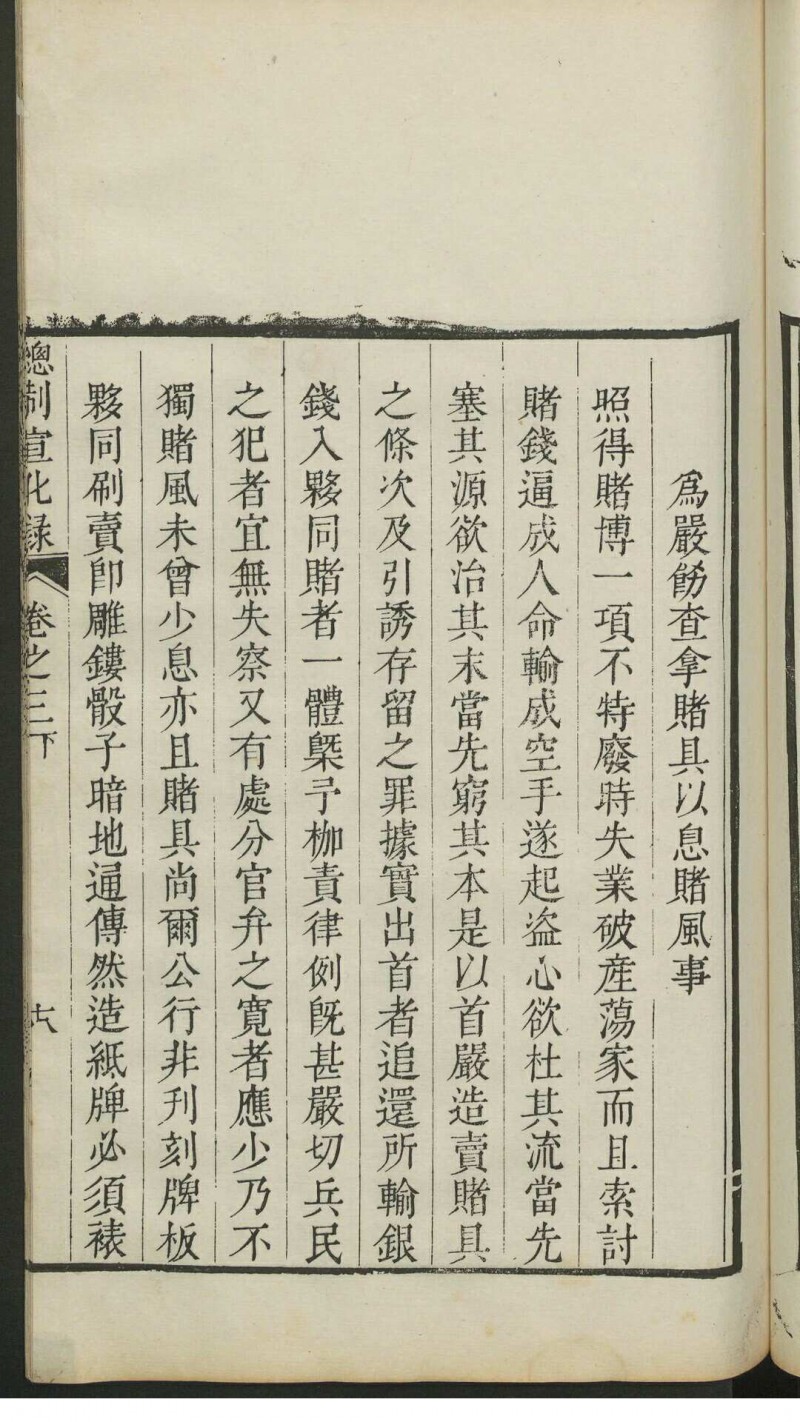 為嚴飭查拿賭具以息賭風事
照得賭博一項不特廢時失業破產蕩家而且索討
賭錢逼成人命輸成空手遂起盜心欲杜其流當先
塞其源欲治其末當先窮其本是以首嚴造賣賭具
之條次及引誘存留之罪據實出首者追還所輸銀
錢入夥同賭者一體槩予枷責律例旣甚嚴切兵民
之犯者宜無失察又有處分官弁之寬者應少乃不
獨賭風未曾少息亦且賭具尚爾公行非刋刻牌板
夥同刷賣卽雕鏤骰子暗地通傳然造紙牌必須裱
總制宣化録 卷之三下